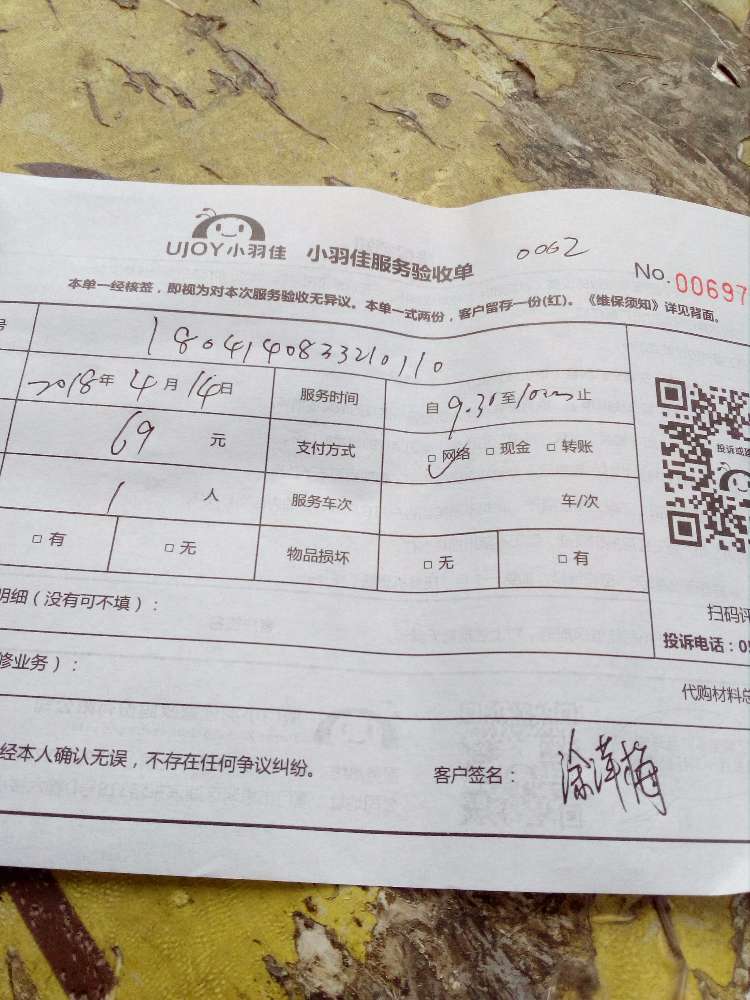 UJOY小羽佳 小羽佳服务验收单 0062 No.00697
本单一经核签，即视为对本次服务验收无异议。本单一式两份，客户留存一份(红)。《维保须知》详见背面。
号 1804140833210110
2018年4月14日 服务时间 自9.30至10 止
69 元 支付方式 □网络 □现金 □转账
1 人 服务车次 车/次
□有 □无 物品损坏 □无 □有
明细（没有可不填）：
修业务）：
投诉或
扫码评
投诉电话：05
代购材料总
经本人确认无误，不存在任何争议纠纷。 客户签名： 涂萍梅